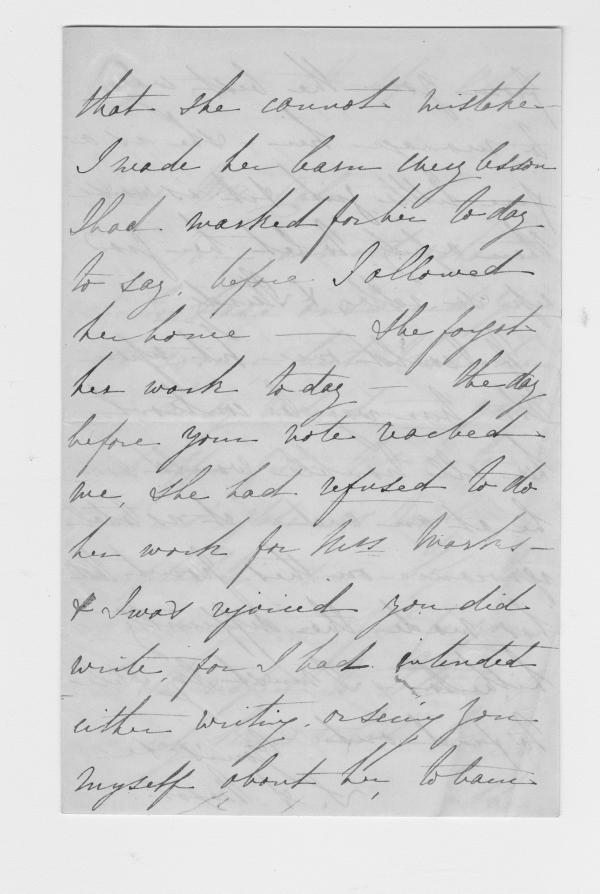 that she cannot mistake
I made her learn every lesson
I had marked for her to day
to say, before I allowed
her home — She forgot
her work to day — the day
before your note reached
me, she had refused to do
her work for Miss Marks —
& I was rejoiced you did
write, for I had intended
either writing, or seeing you
myself about her, to